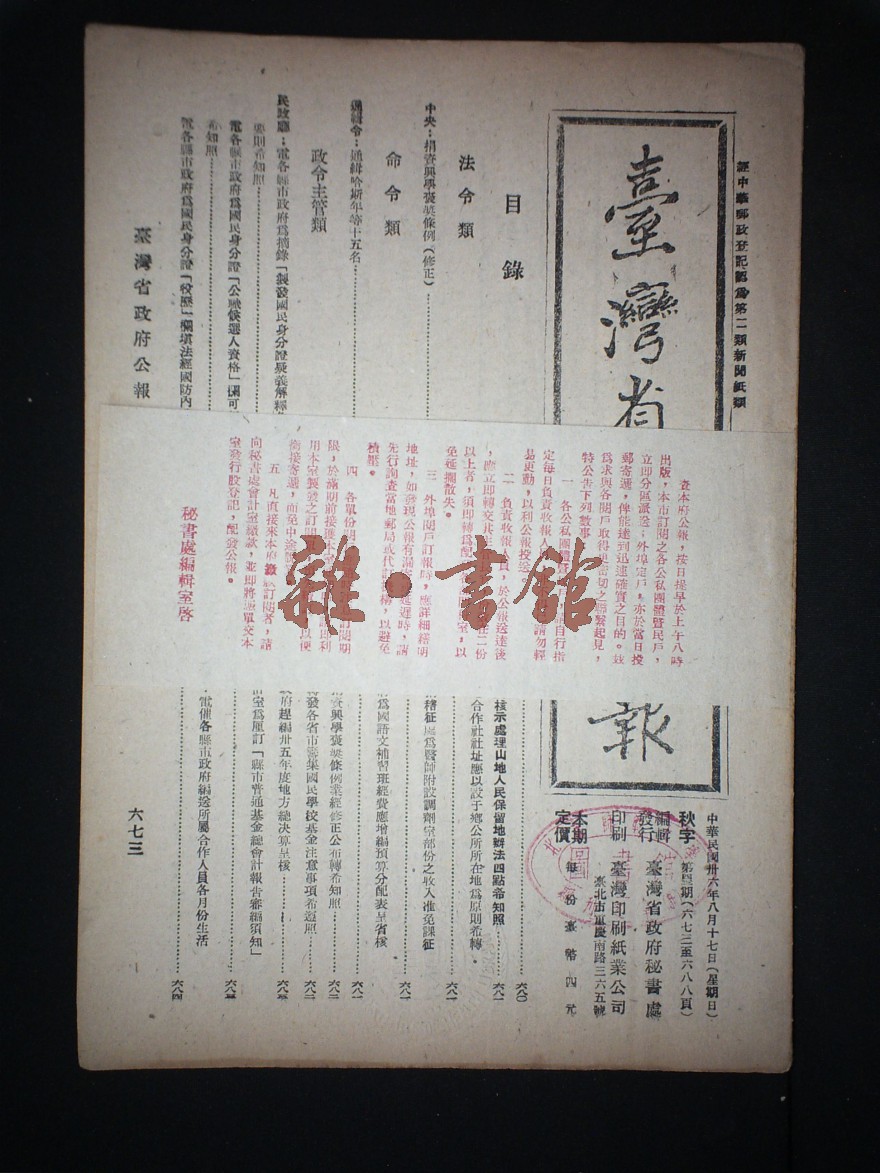 經中華郵政登記認為第二類新聞紙類
臺灣省
報
中華民國卅六年八月十七日(星期日)
秋字 第四期(六七三至六八八頁)
編輯
發行 臺灣省政府秘書處
印刷 臺灣印刷紙業公司
臺北市重慶南路三六五號
本期
定價 每份臺幣四元
目錄
法令類
中央:捐資興學褒奬條例(修正)
命令類
通緝令:通緝哈斯年等十五名
政令主管類
民政廳:電各縣市政府為摘錄「製發國民身分證疑義解釋
則希知照
電各縣市政府為國民身分證「公職候選人資格」欄可
希知照
電各縣市政府為國民身分證「役歷」欄填法經國防內
臺灣省政府公報
查本府公報,按日提早於上午八時
出版,本市訂閱之各公私團體暨民戶,
立即分區派送;外埠定戶,亦於當日投
郵寄遞,俾能達到迅速確實之目的。茲
為求與各閱戶取得更密切之聯繫起見,
特公告下列數事:
一 各公私團體
自行指
定每日負責收報人
請勿輕
易更動,以利公報投送
二 負責收報人員,於公報送達後
,應立即轉交
在二份
以上者,須即轉為配
室,以
免延擱散失。
三 外埠閱戶訂報時,應詳細繕明
地址,如發現公報有漏
延遲時,請
先行詢查當地郵局或代
構,以避免
積壓。
四 各單份閱
訂閱期
限,於滿期前接獲本
即利
用本室製發之訂閱
以便
銜接寄遞,而免中途
五 凡直接來本府繳
訂閱者,請
向秘書處會計室繳款,並即將
單交本
室發行股登記,配發公報。
秘書處編輯室啓
雜·書館
核示處理山地人民保留地辦法四點希知照 六八〇
合作社社址應以設于鄉公所所在地為原則希轉 六八一
稽征
為醫師附設調劑室部份之收入准免課征 六八一
為國語文補習班經費應增編預算分配表呈省核 六八一
資興學褒奬條例業經修正公布轉希知照
發各省市籌集國民學校基金注意事項希遵照
政府趕編卅五年度地方總決算呈核
室為厘訂「縣市普通基金總會計報告審編須知」
電催各縣市政府編送所屬合作人員各月份生活 六八四
六七三